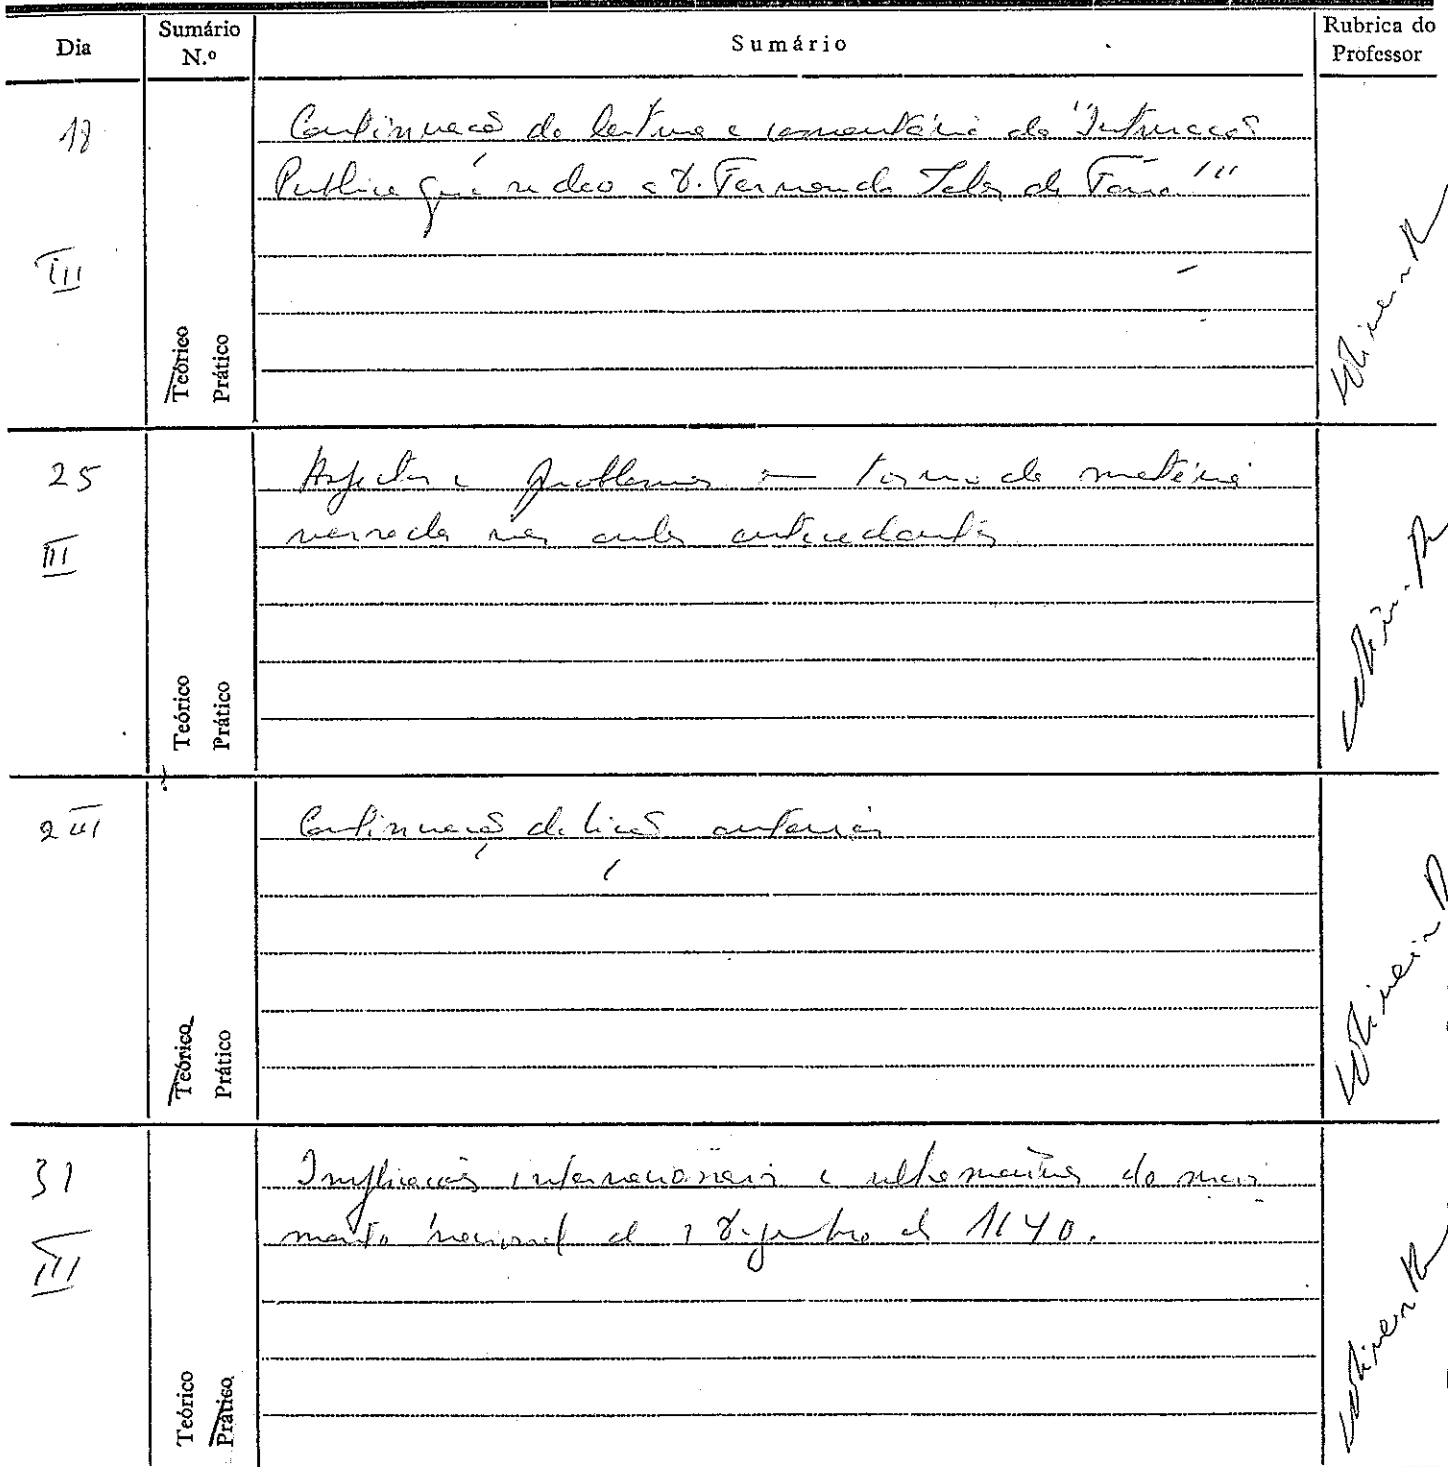 Dia
Sumário N.º
Sumário
Rubrica do Professor
18
III
Teórico
Prático
Continuação da leitura e comentário da "Instrucçaõ
Publica que se deo a D. Fernando Teles de Faro"
25
III
Teórico
Prático
Aspectos e problemas em torno da matéria
versada nas aulas antecedentes
2 III
Teórico
Prático
Continuação da lição anterior
31
III
Teórico
Prático
Implicações internacionais e ultramarinas do movi
mento nacional de 1 Dezembro de 1640.